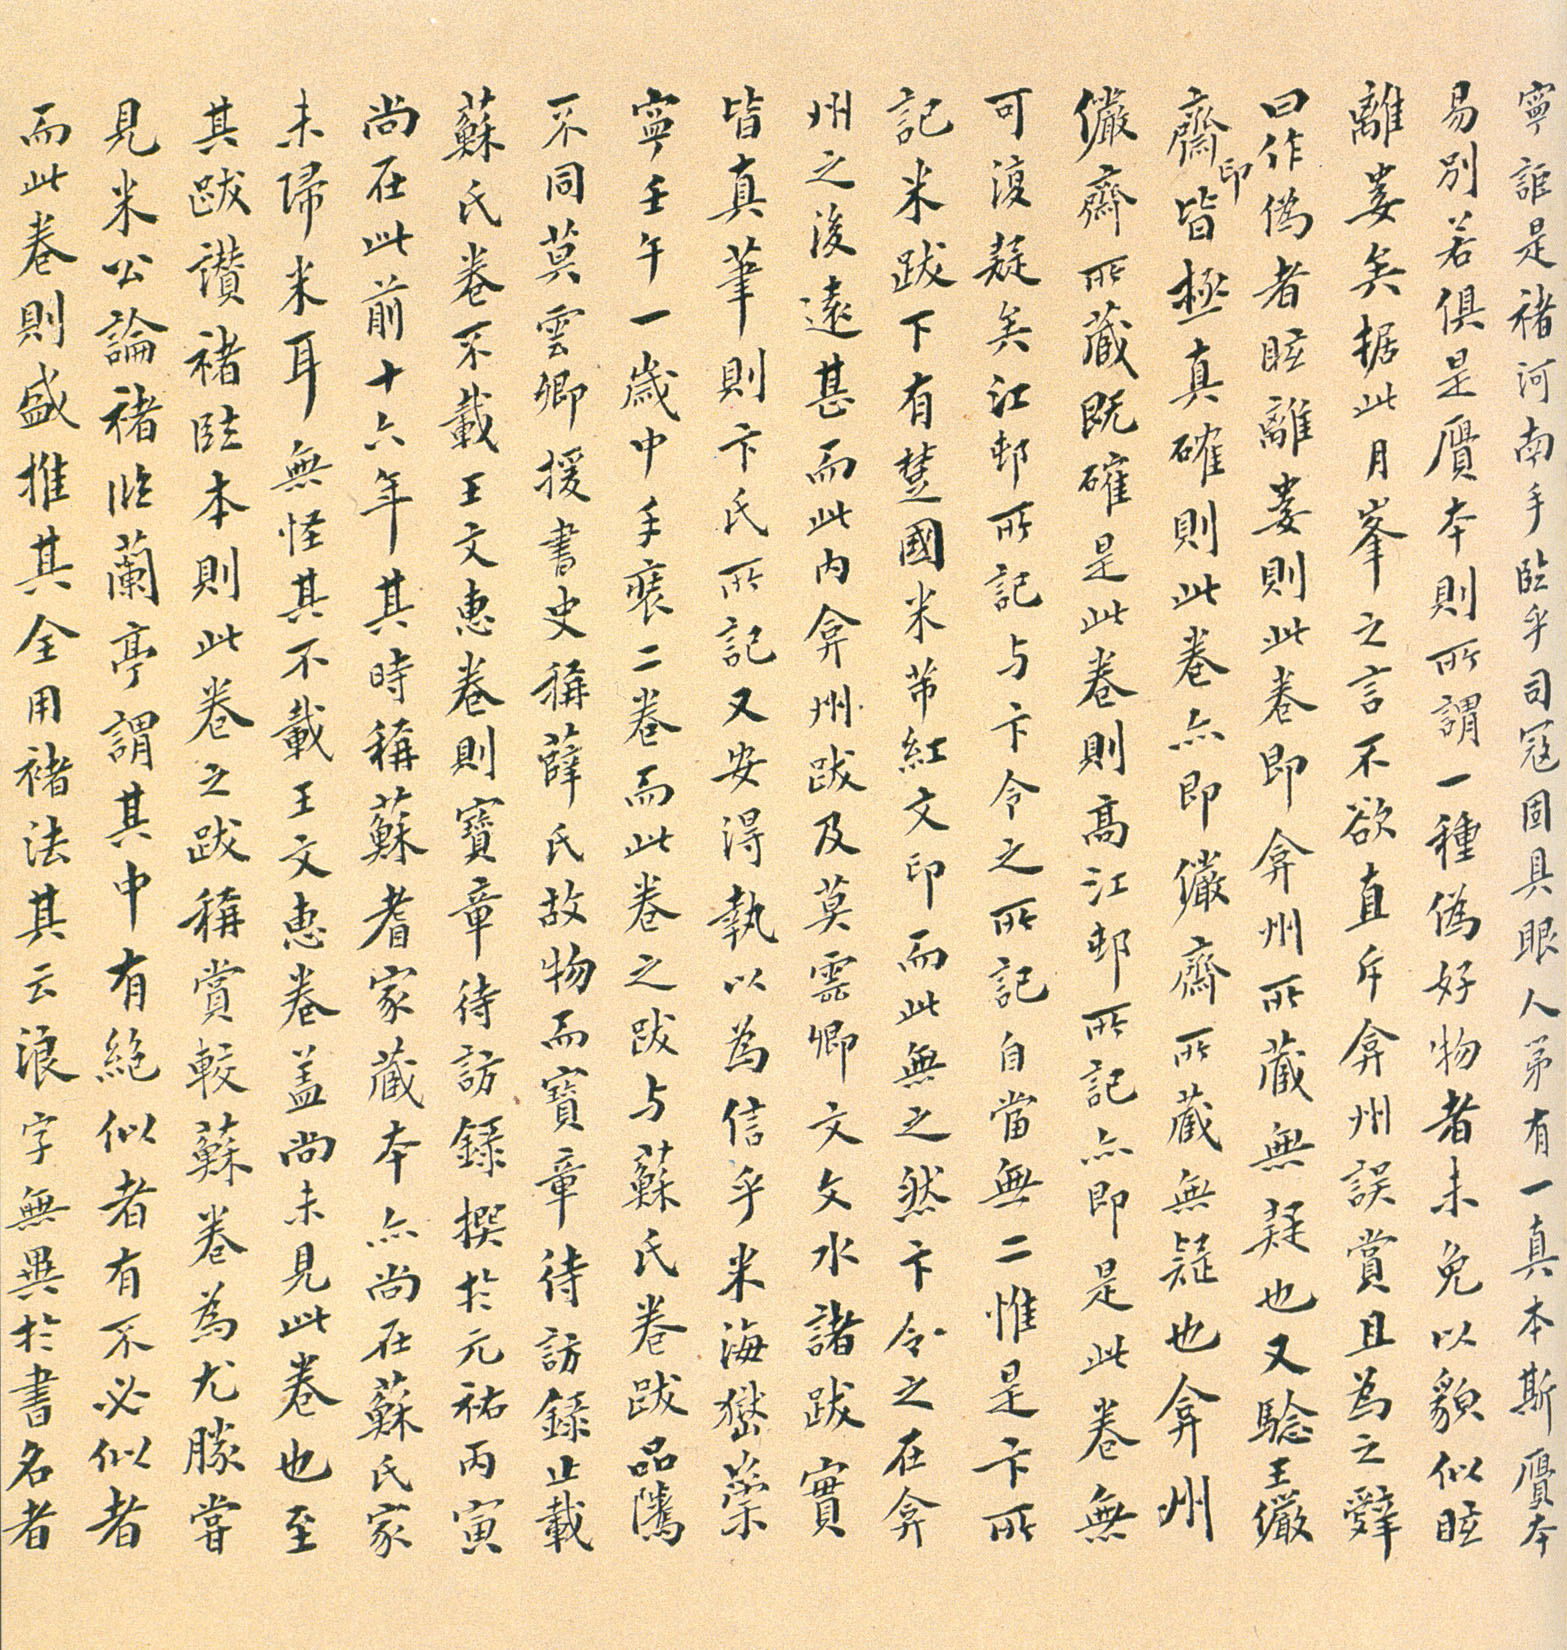 寧詎是褚河南手臨乎司寇固具眼人第有一真本斯贋本
易別若俱是贋本則所謂一種偽好物者未免以貌似眩
離婁矣据此月峯之言不欲直斥弇州誤賞且為之辭
曰作偽者眩離婁則此卷即弇州所藏無疑也又騐王儼
齋印皆極真確則此卷亦即儼齋所藏無疑也弇州
儼齋所藏既確是此卷則高江邨所記亦即是此卷無
可復疑矣江邨所記与卞令之所記自當無二惟是卞所
記米跋下有楚國米芾紅文印而此無之然卞令之在弇
州之後遠甚而此內弇州跋及莫雲卿文文水諸跋實
皆真筆則卞氏所記又安得執以為信乎米海嶽崇
寧壬午一歲中手裝二卷而此卷之跋与蘇氏卷跋品隲
不同莫雲卿援書史稱薛氏故物而寶章待訪錄止載
蘇氏卷不載王文惠卷則寶章待訪錄撰於元祐丙寅
尚在此前十六年其時稱蘇耆家藏本亦尚在蘇氏家
未歸米耳無怪其不載王文惠卷盖尚未見此卷也至
其跋讚褚臨本則此卷之跋稱賞較蘇卷為尤勝嘗
見米公論褚臨蘭亭謂其中有絕似者有不必似者
而此卷則盛推其全用褚法其云浪字無異於書名者